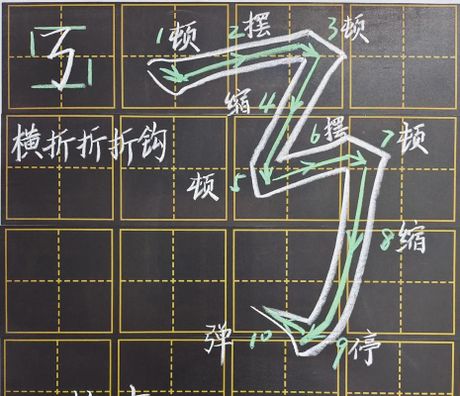 1顿 2摆 3顿
缩4
6摆 7顿
横折折折钩
顿 5
8缩
弹 10
9停